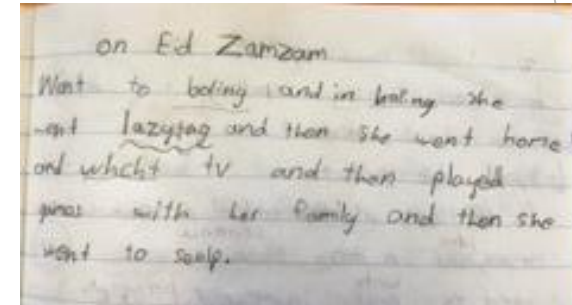 on Ed Zamzam
Want to boling and in boling she
went lazytag and then she went home
and whcht tv and then played
with her family and then she
went to seelp.